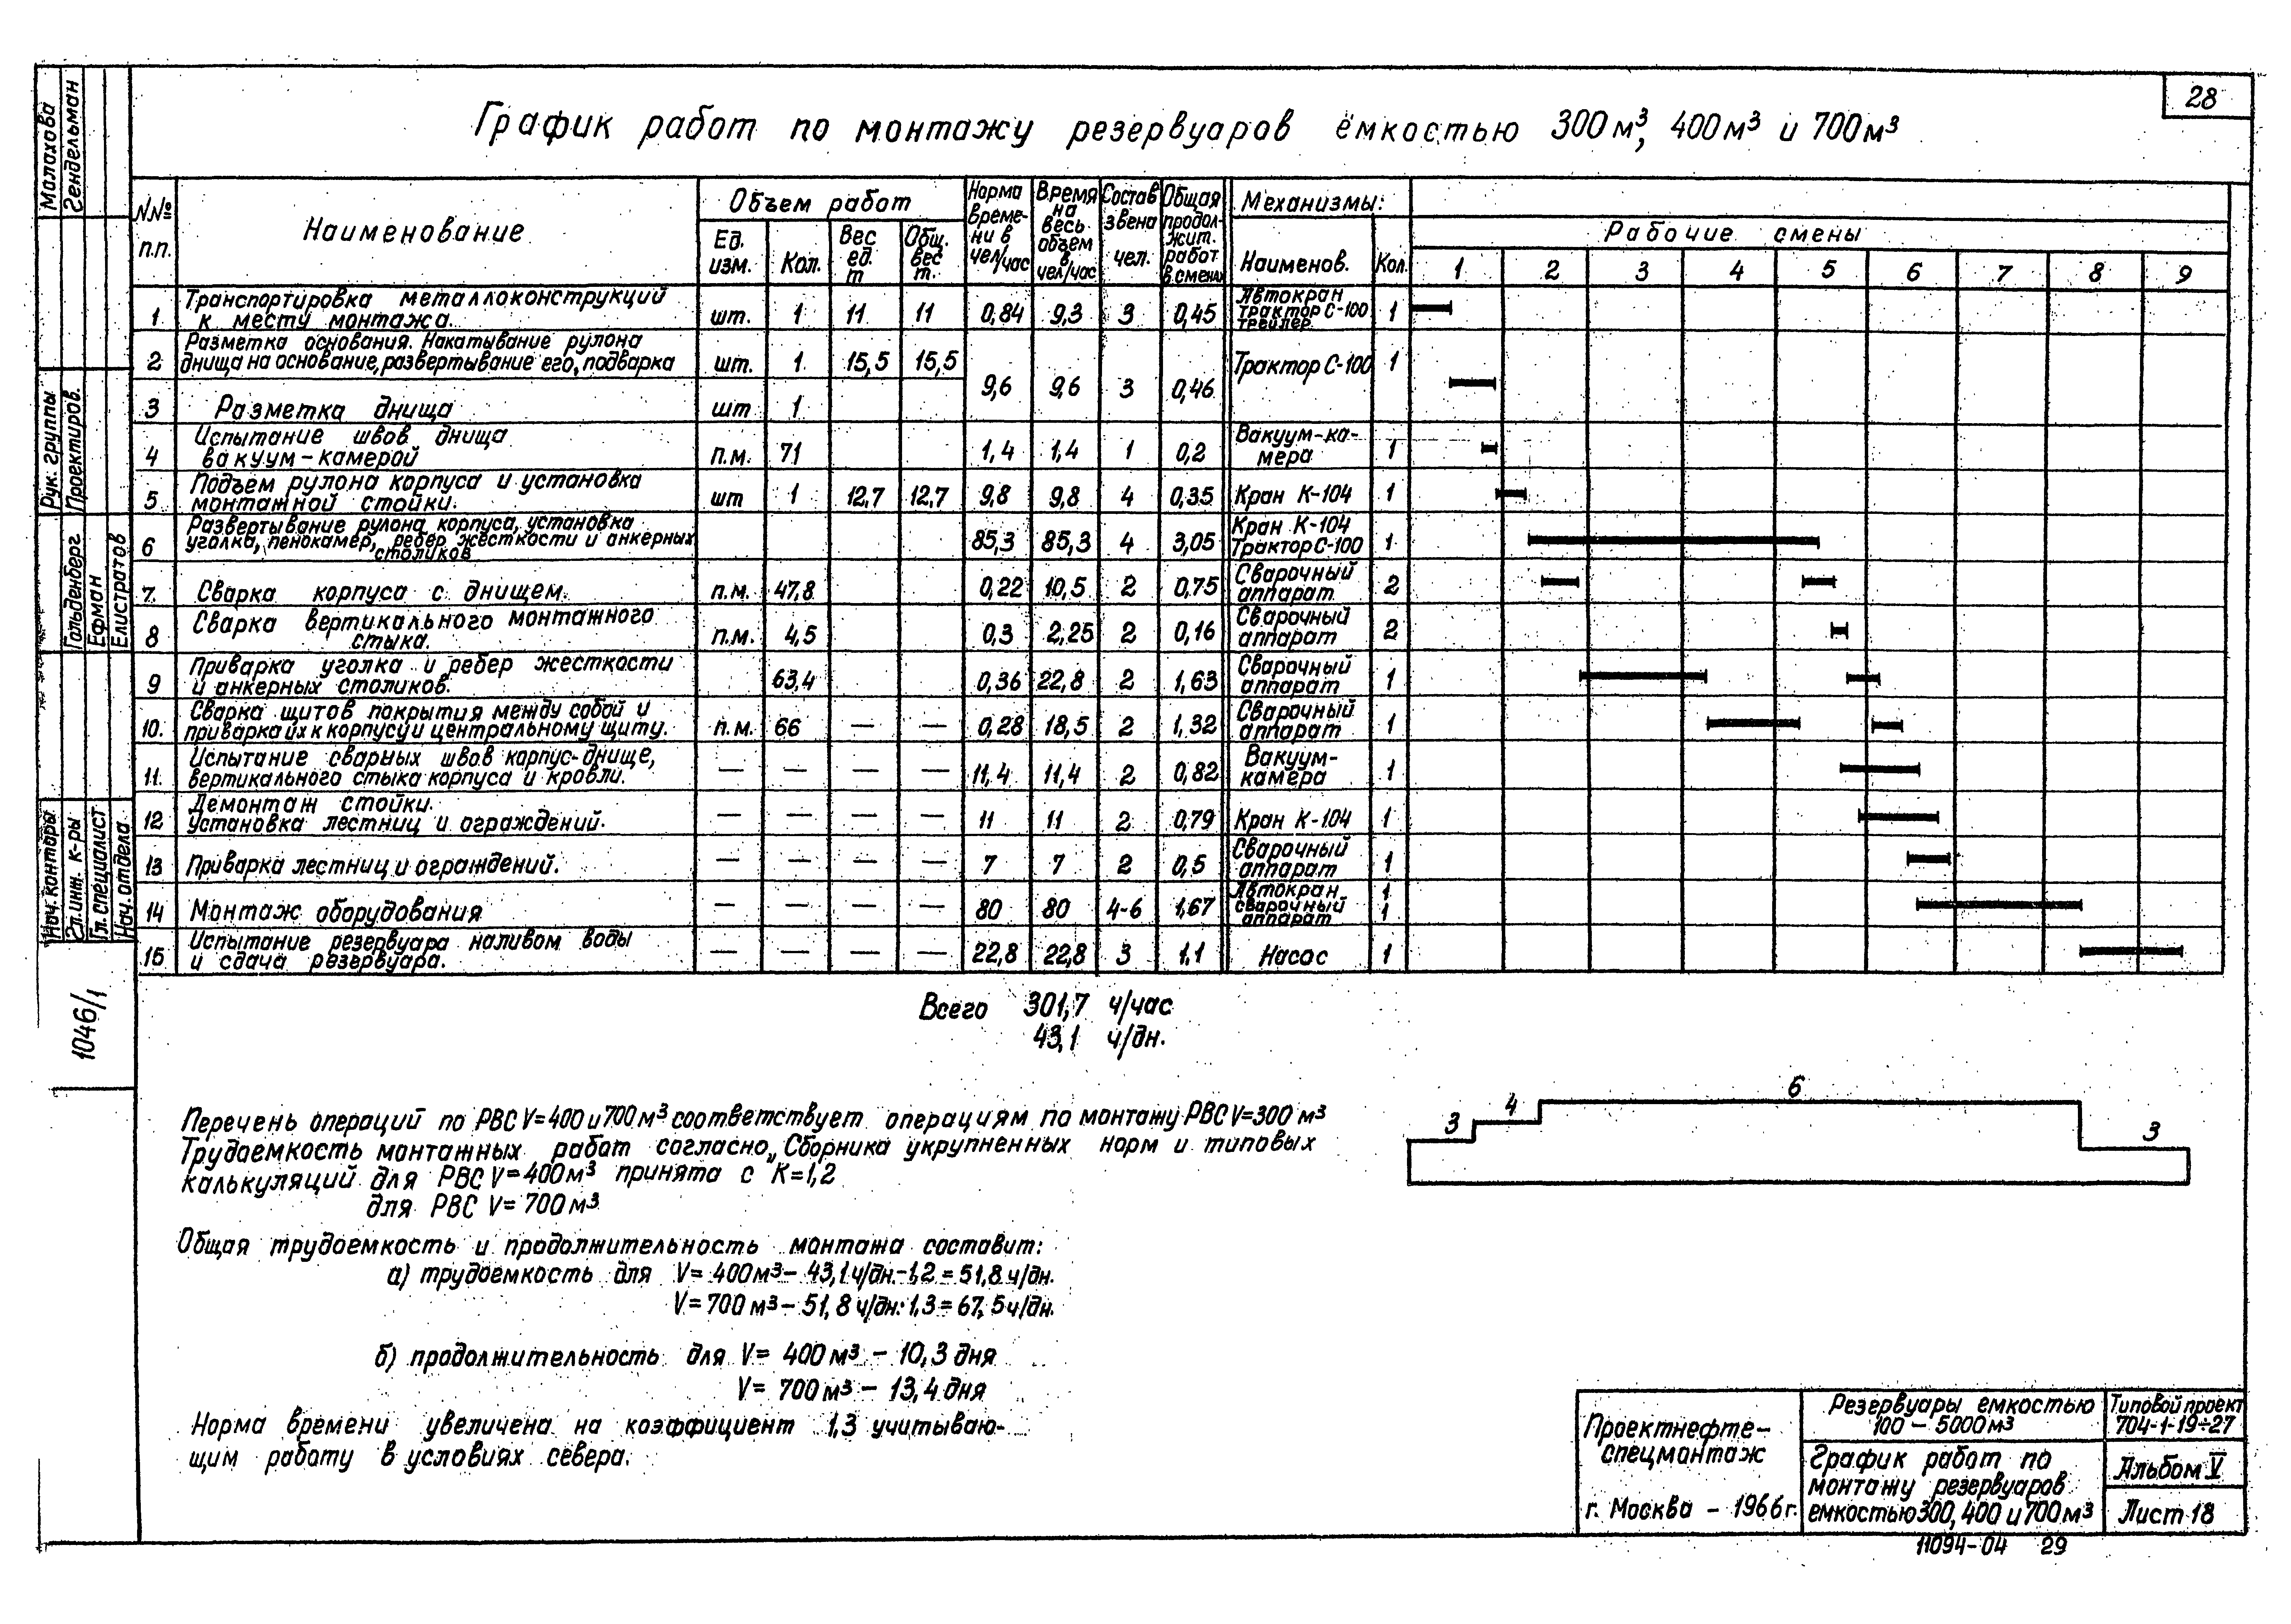 28
График работ по монтажу резервуаров ёмкостью 300м³, 400м³ и 700м³
Малахова
Гендельман
Рук. группы
Проектиров.
Гольденберг
Ефман
Елистратов
Нач. конторы
Гл. инж. к-ры
Гл. специалист
Нач. отдела
1046/1
N№ п.п. Наименование Объем работ Норма време- ни в чел/час Время на весь объем в чел/час Состав звена чел. Общая продол- жит. работ в смены Механизмы: Рабочие смены
Ед. изм. Кол. Вес ед. т Общ. вес т. Наименов. Кол. 1 2 3 4 5 6 7 8 9
1 Транспортировка металлоконструкций к месту монтажа. шт. 1 11 11 0,84 9,3 3 0,45 Автокран трактор С-100 трейлер 1
2 Разметка основания. Накатывание рулона днища на основание, развертывание его, подварка шт. 1 15,5 15,5 9,6 9,6 3 0,46 Трактор С-100 1
3 Разметка днища шт 1
4 Испытание швов днища вакуум-камерой п.м. 71 1,4 1,4 1 0,2 Вакуум-ка- мера 1
5 Подъем рулона корпуса и установка монтажной стойки. шт 1 12,7 12,7 9,8 9,8 4 0,35 Кран К-104 1
6 Развертывание рулона корпуса, установка уголка, пенокамер, ребер жесткости и анкерных столиков 85,3 85,3 4 3,05 Кран К-104 Трактор С-100 1
7. Сварка корпуса с днищем. п.м. 47,8 0,22 10,5 2 0,75 Сварочный аппарат 2
8 Сварка вертикального монтажного стыка. п.м. 4,5 0,3 2,25 2 0,16 Сварочный аппарат 2
9 Приварка уголка и ребер жесткости и анкерных столиков. 63,4 0,36 22,8 2 1,63 Сварочный аппарат 1
10. Сварка щитов покрытия между собой и приварка их к корпусу и центральному щиту. п.м. 66 — — 0,28 18,5 2 1,32 Сварочный аппарат 1
11. Испытание сварных швов корпус-днище, вертикального стыка корпуса и кровли. — — — — 11,4 11,4 2 0,82 Вакуум- камера 1
12 Демонтаж стойки. Установка лестниц и ограждений. — — — — 11 11 2 0,79 Кран К-104 1
13 Приварка лестниц и ограждений. — — — — 7 7 2 0,5 Сварочный аппарат 1
14 Монтаж оборудования — — — — 80 80 4-6 1,67 Автокран сварочный аппарат 1 1
15 Испытание резервуара наливом воды и сдача резервуара. — — — — 22,8 22,8 3 1,1 Насос 1
Всего 301,7 ч/час
43,1 ч/дн.
3 4 6 3
Перечень операций по РВС V=400 и 700м³ соответствует операциям по монтажу РВС V=300 м³
Трудоемкость монтажных работ согласно „Сборника укрупненных норм и типовых
калькуляций для РВС V=400м³ принята с К=1,2
для РВС V=700м³
Общая трудоемкость и продолжительность монтажа составит:
а) трудоемкость для V= 400м³- 43,1ч/дн.-1,2 = 51,8 ч/дн.
V=700м³- 51,8ч/дн.·1,3=67,5ч/дн.
б) продолжительность для V= 400м³ - 10,3 дня
V= 700м³ - 13,4 дня
Норма времени увеличена на коэффициент 1,3 учитываю-
щим работу в условиях севера.
Проектнефте-
спецмонтаж
г. Москва - 1966г.
Резервуары емкостью
100 - 5000м³
График работ по
монтажу резервуаров
емкостью 300, 400 и 700м³
Типовой проект
704-1-19÷27
Альбом V
Лист 18
11094-04 29